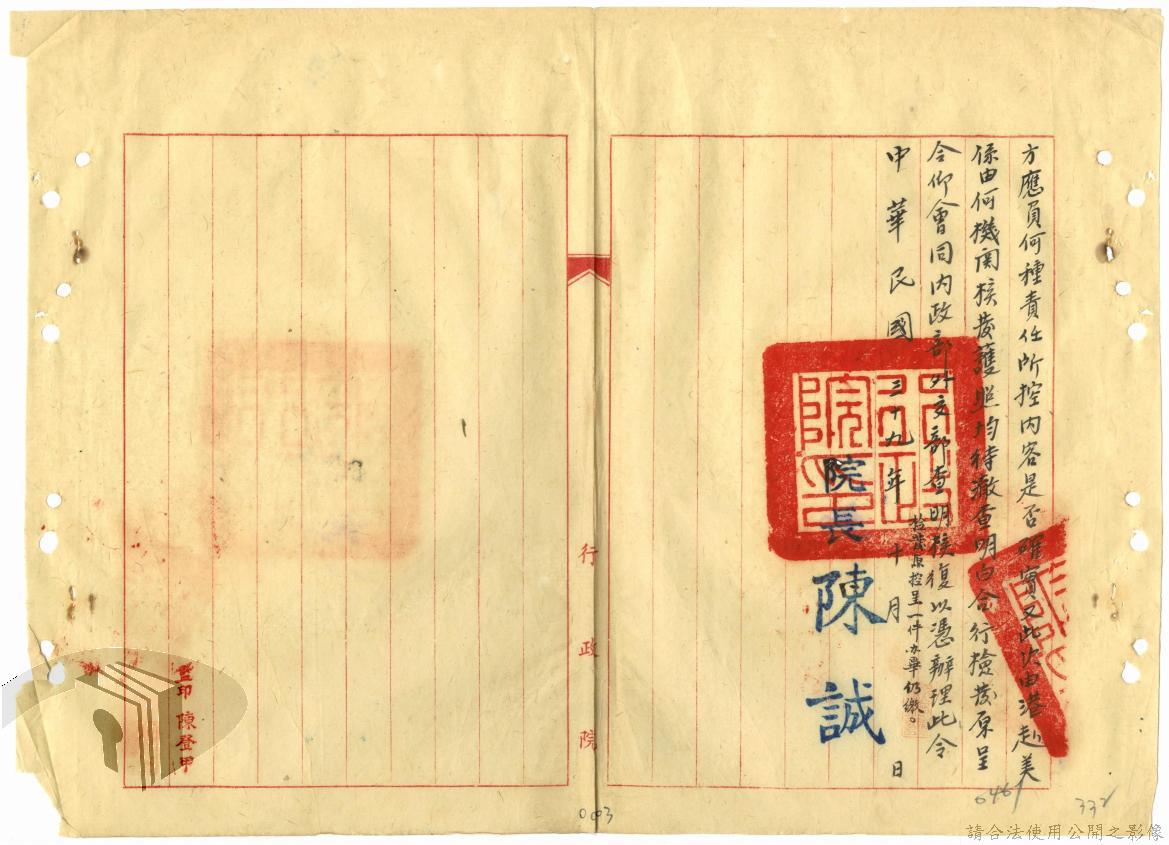 方應負何種責任所控內容是否確實又此次由港赴美
係由何機関核發護照均待澈查明白合行檢發原呈
令仰會同內政部外交部查明核復以憑辦理此令
檢發原控呈一件办畢仍繳。
中華民國三十九年十月 日
院長陳誠
行政院
監印陳登甲
003
6461
332
請合法使用公開之影像